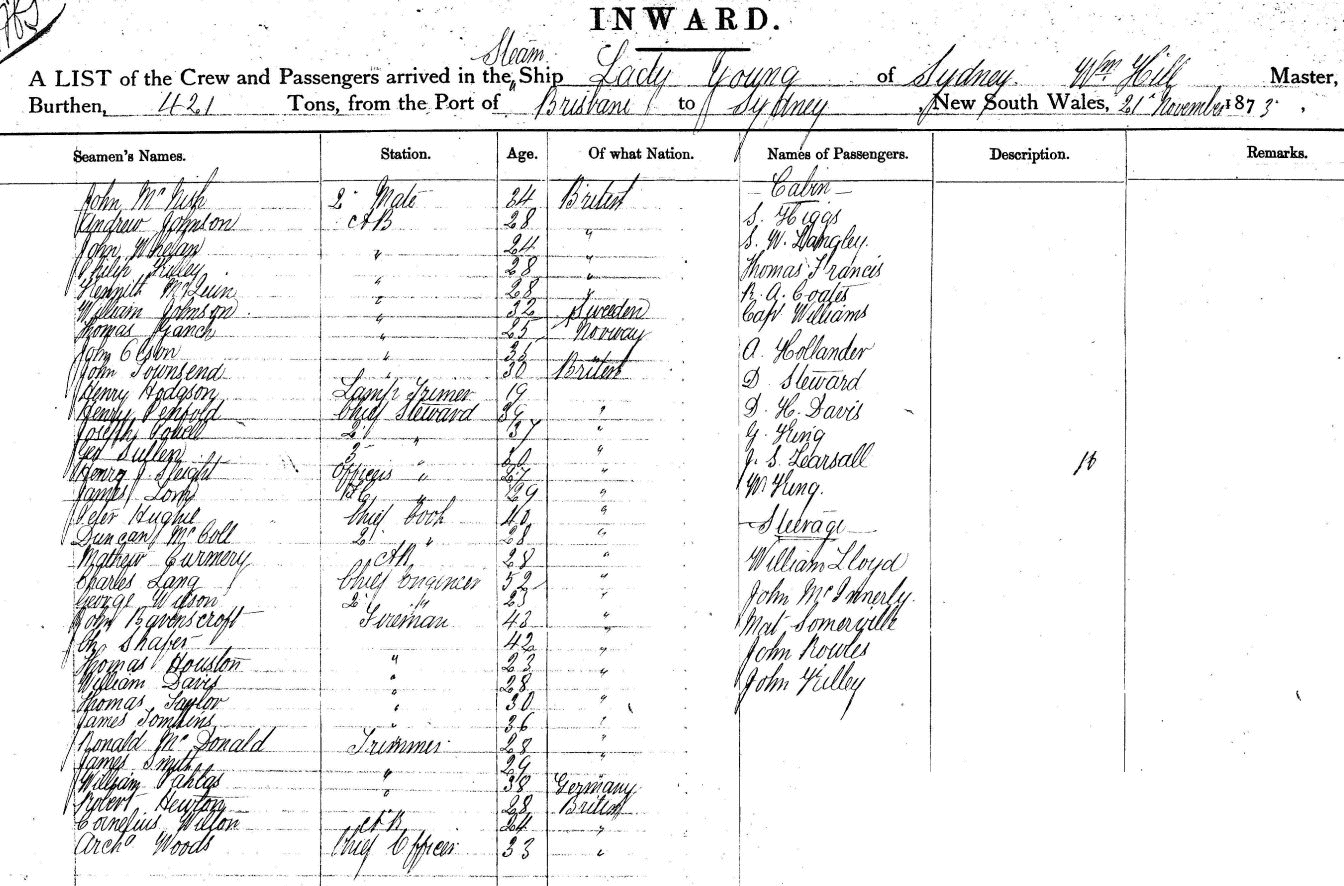 INWARD.
Steam
A LIST of the Crew and Passengers arrived in the Ship Lady Young of Sydney Wm Hill Master,
Burthen, 421 Tons, from the Port of Brisbane to Sydney, New South Wales, 21st November 1873.
Seamen's Names. Station. Age. Of what Nation. Names of Passengers. Description. Remarks.
John Mc Nish 2 Mate 24 British Cabin
Andrew Johnson AB 28 " S. Higgs
John Whelan " 24 " S. W. Langley
Philip Kelley " 28 " Thomas Francis
Kennith " 28 " R. A. Coates
William Johnson " 32 Sweeden Capt Williams
Thomas " 25 Norway
John Olson " 35 A. Hollander
John Townsend " 30 British D. Steward
Henry Hodgson Lamp Trimer 19
Henry Penfold Chief Steward 39 " D. H. Davis
Joseph 2 " 37 " G. King
Geo Sullen 3 " 20 " J. S. Pearsall 16
Henry J. Sleight Officers " 27 "
James " 29 " W King.
Peter Hughie Chief Cook 40 " Steerage
Duncan Mc Coll 2 " 28 "
Mathew Curmery AB 28 " William Lloyd
Charles Lang Chief Engineer 52 "
George Wilson 2 " 23 " John Mc Innerly
John Ravenscroft Fireman 43 " Mat Somerville
Ch Shafer 42 " John Rowles
Thomas Houston " 23 "
William Davis " 28 " John Kelley
Thomas Taylor " 30 "
James Tomkins " 36 "
Ronald Mc Donald Trimmer 28 "
James Smith 29 "
William " 38 Germany
Robert Hewton " 28 British
Cornelius Wilton AB 24 "
Archd Woods Chief Officer 33 "